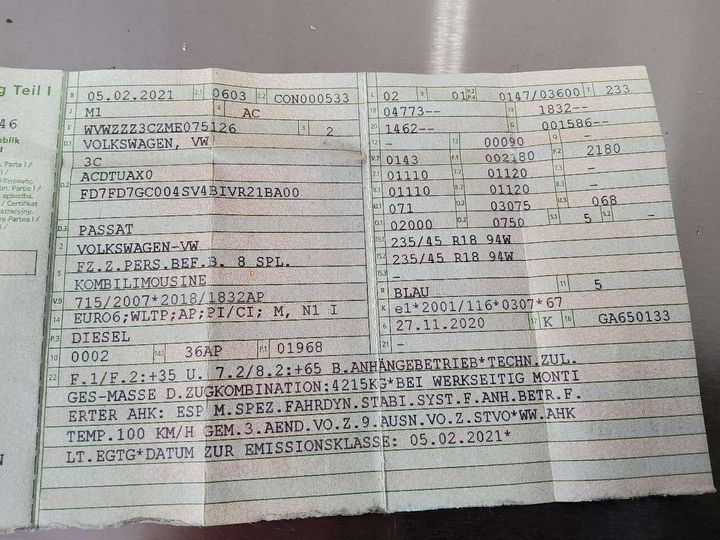 g Teil I
46
publik
d
Parte I /
B 05.02.2021 2.1 0603 2.2 CON000533
J M1 4 AC
E WVWZZZ3CZME075126 3 2
D.1 VOLKSWAGEN, VW
3C
D.2 ACDTUAX0
FD7FD7GC004SV4BIVR21BA00
D.3 PASSAT
2 VOLKSWAGEN-VW
5 FZ.Z.PERS.BEF.B. 8 SPL.
KOMBILIMOUSINE
V.9 715/2007*2018/1832AP
14 EURO6;WLTP;AP;PI/CI; M, N1 I
P.3 DIESEL
10 0002 14.1 36AP P.1 01968
L 02 9 01 P.2 P.4 0147/03600 T 233
18 04773-- 19 1832--
20 1462-- G 001586--
12 - 13 00090 Q -
V.7 0143 F.1 002180 F.2 2180
7.1 01110 7.2 01120 7.3 -
8.1 01110 8.2 01120 8.3 -
U.1 071 U.2 03075 U.3 068
O.1 02000 O.2 0750 S.1 5 S.2 -
15.1 235/45 R18 94W
15.2 235/45 R18 94W
15.3 -
R BLAU 11 5
K e1*2001/116*0307*67
6 27.11.2020 17 K 16 GA650133
22 F.1/F.2:+35 U. 7.2/8.2:+65 B.ANHÄNGEBETRIEB*TECHN.ZUL.
GES-MASSE D.ZUGKOMBINATION:4215KG*BEI WERKSEITIG MONTI
ERTER AHK: ESP M.SPEZ.FAHRDYN.STABI.SYST.F.ANH.BETR.F.
TEMP.100 KM/H GEM.3.AEND.VO.Z.9.AUSN.VO.Z.STVO*WW.AHK
LT.EGTG*DATUM ZUR EMISSIONSKLASSE: 05.02.2021*
N